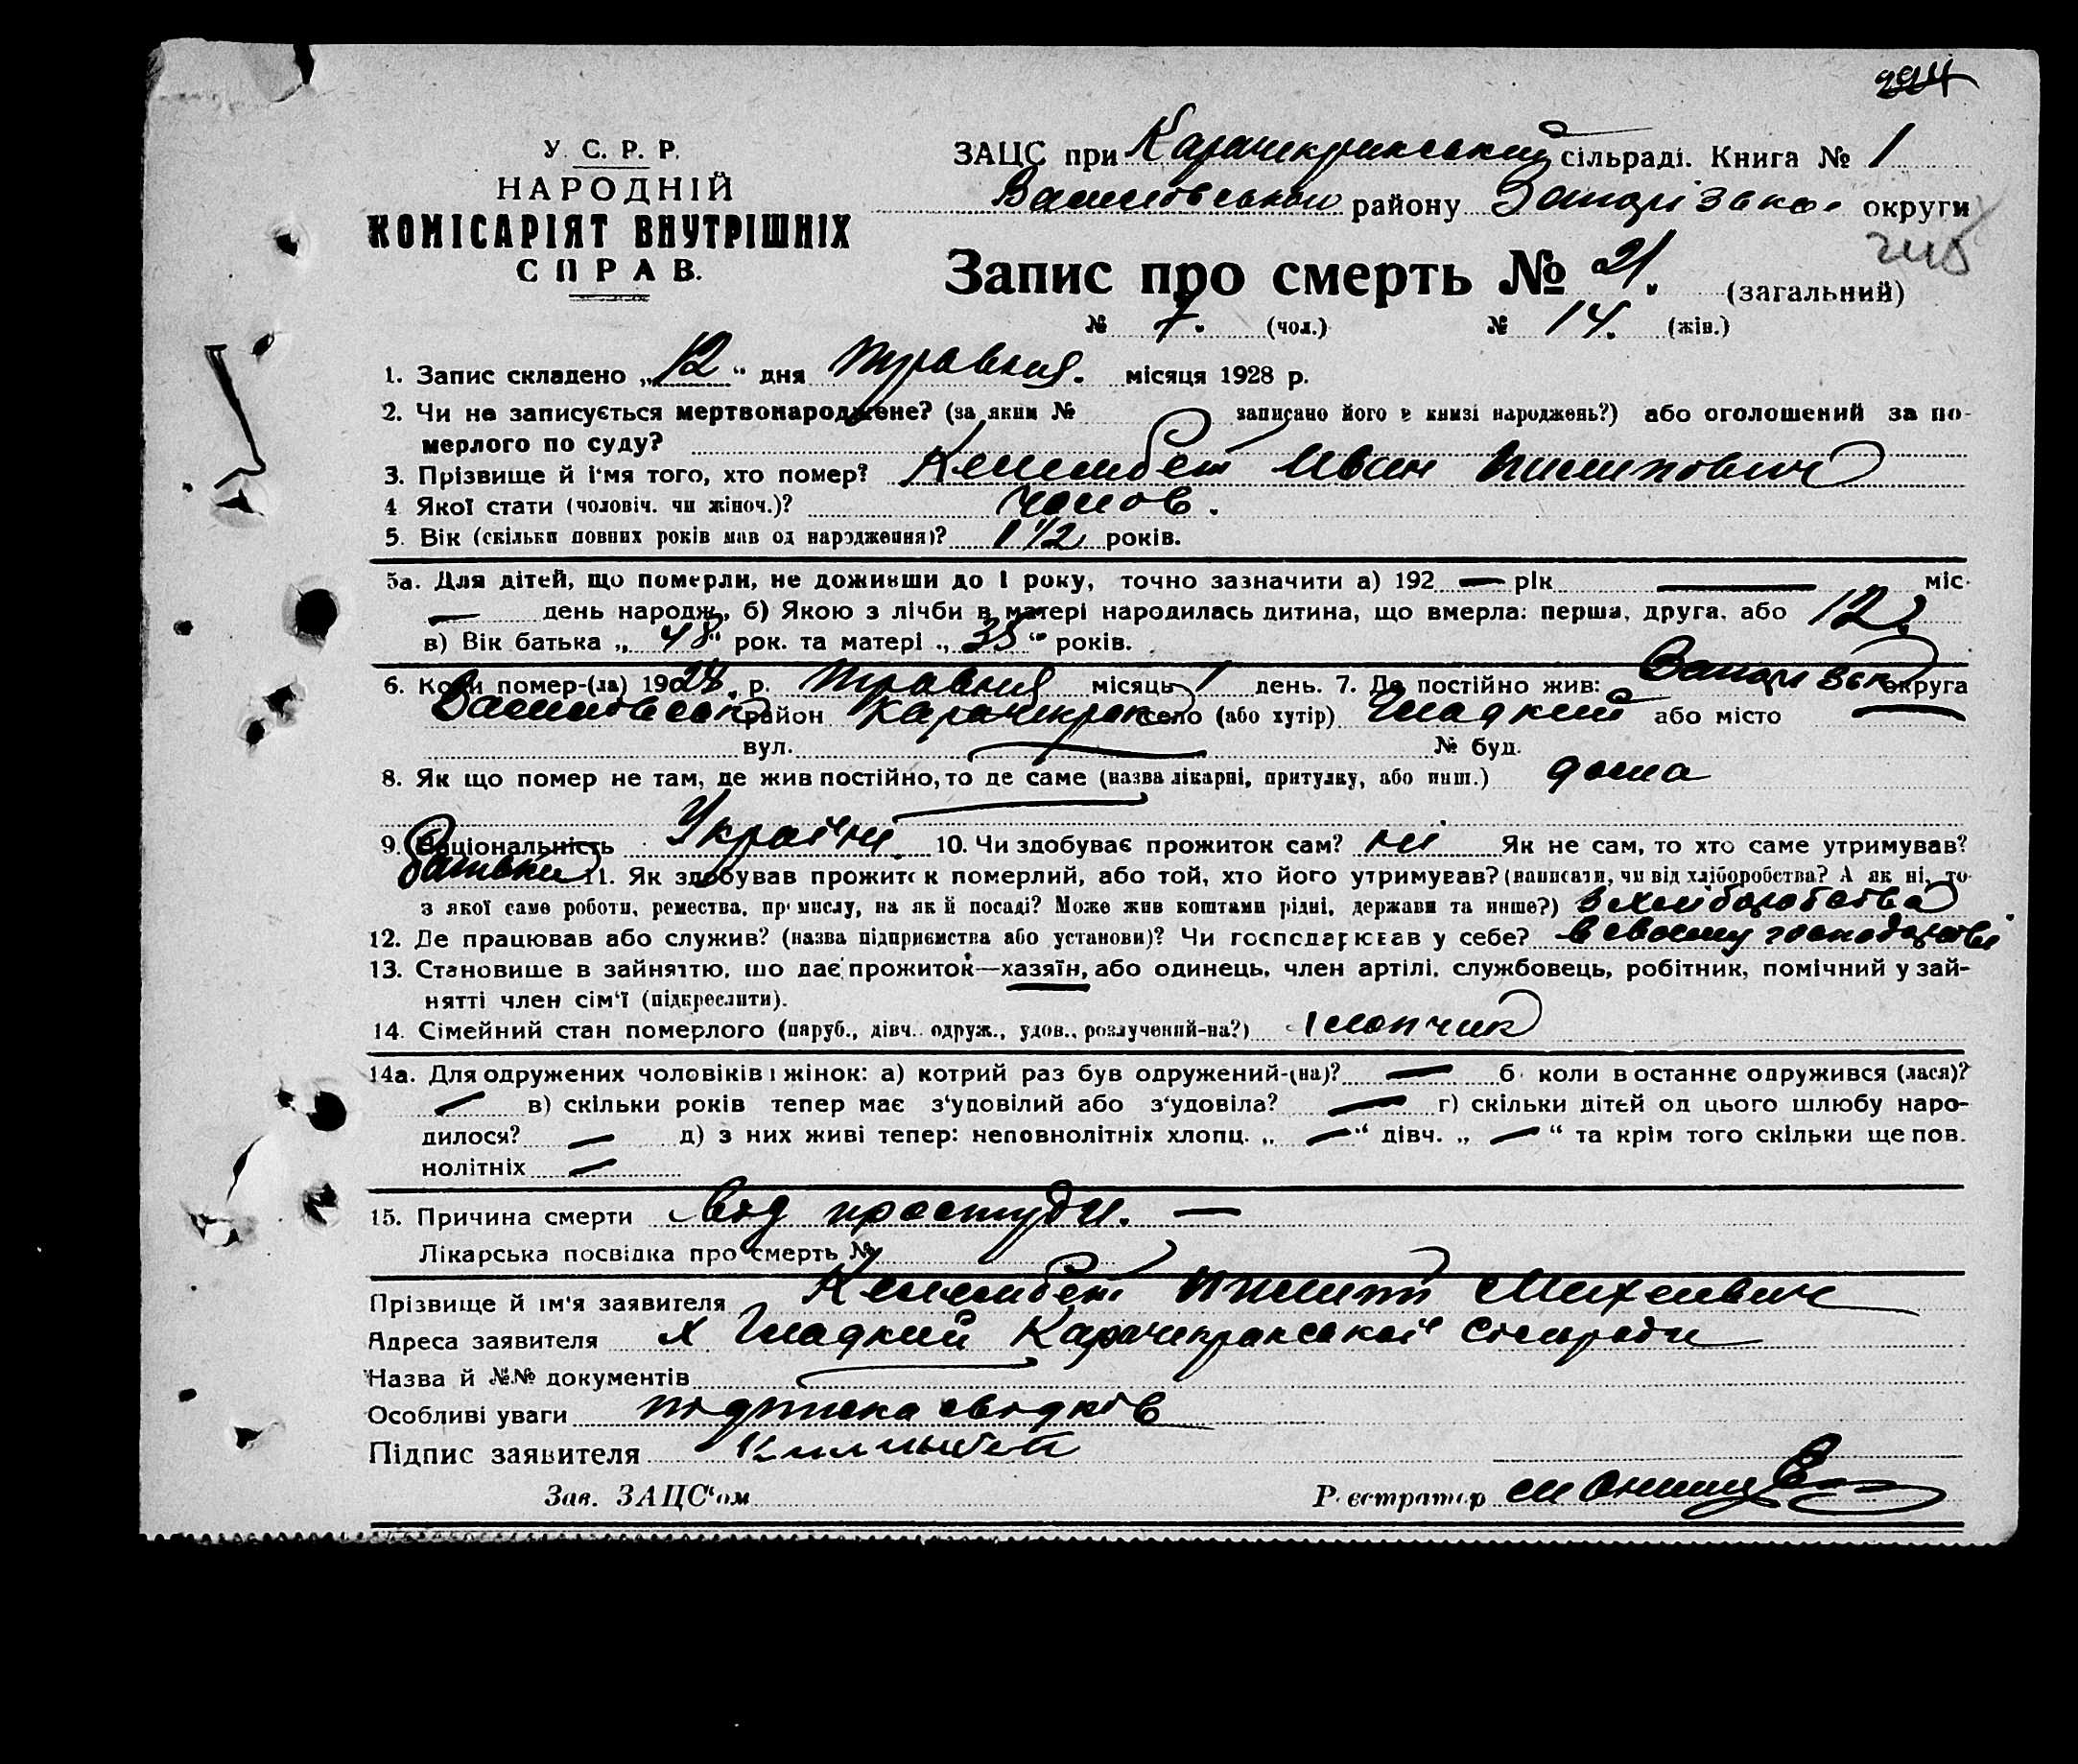 294
У. С. Р. Р.
НАРОДНІЙ
КОМІСАРІЯТ ВНУТРІШНІХ
СПРАВ.
ЗАЦС при Карачекракський сільраді. Книга № 1
Василівського району Запорізької округи
Запис про смерть № 21. (загальний)
№ 7. (чол.) № 14. (жін.)
1. Запис складено „12“ дня Травня. місяця 1928 р.
2. Чи не записується мертвонароджене? (за яким № записано його в книзі народжень?) або оголошений за по-
мерлого по суду?
3. Прізвище й і'мя того, хто помер? Иван Пилипович
4 Якої стати (чоловіч. чи жіноч.)? чолов.
5. Вік (скільки повних років мав од народження)? 1 1/2 років.
5а. Для дітей, що померли, не доживши до 1 року, точно зазначити а) 192 — рік — міс.
— день народж., б) Якою з лічби в матері народилась дитина, що вмерла: перша, друга, або 12.
в) Вік батька „48“ рок. та матері „38“ років.
6. Коли помер-(ла) 1928. р. Травня місяць 1 день. 7. Де постійно жив: Запорізьк округа
Василівський район Карачекрак село (або хутір) Гладкий або місто —
вул. — № буд.
8. Як що помер не там, де жив постійно, то де саме (назва лікарні, притулку, або инш.) дома
9. Національність Україн. 10. Чи здобуває прожиток сам? ні Як не сам, то хто саме утримував?
батьки 11. Як здобував прожиток померлий, або той, хто його утримував? (написати, чи від хліборобства? А як ні, то
з якої саме роботи, ремества, промислу, на якій посаді? Може жив коштами рідні, держави та инше?) з хліборобства.
12. Де працював або служив? (назва підприємства або установи)? Чи господарював у себе? в своему господарстві
13. Становище в зайняттю, що дає прожиток—хазяїн, або одинець, член артілі, службовець, робітник, помічний у зай-
нятті член сім'ї (підкреслити).
14. Сімейний стан померлого (паруб., дівч. одруж., удов., розлучений-на?) хлопчик
14а. Для одружених чоловіків і жінок: а) котрий раз був одружений-(на)? — б коли в останнє одружився (лася)?
— в) скільки років тепер має з'уповілий або з'удовіла? — г) скільки дітей од цього шлюбу наро-
дилося? — д) з них живі тепер: неповнолітніх хлопц. „—“ дівч. „—“ та крім того скільки ще пов.
нолітніх —
15. Причина смерти від простуди. —
Лікарська посвідка про смерть №
Прізвище й ім'я заявителя Пилип Михеивич
Адреса заявителя х Гладкий Карачекракської сільради
Назва й №№ документів
Особливі уваги підписка свідків
Підпис заявителя
Зав. ЗАЦС'ом Реєстратор